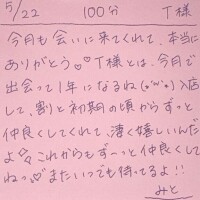 5/22 100分 T様
今月も会いに来てくれて、本当に
ありがとう♡♡T様とは、今月で
出会って1年になるね(•'w'•)入店
して、割と初期の頃からずっと
仲良くしてくれて、凄く嬉しいんだ
よ☆☆これからもず〜っと仲良くして
ねっ♡またいつでも待ってるよ!!
みと